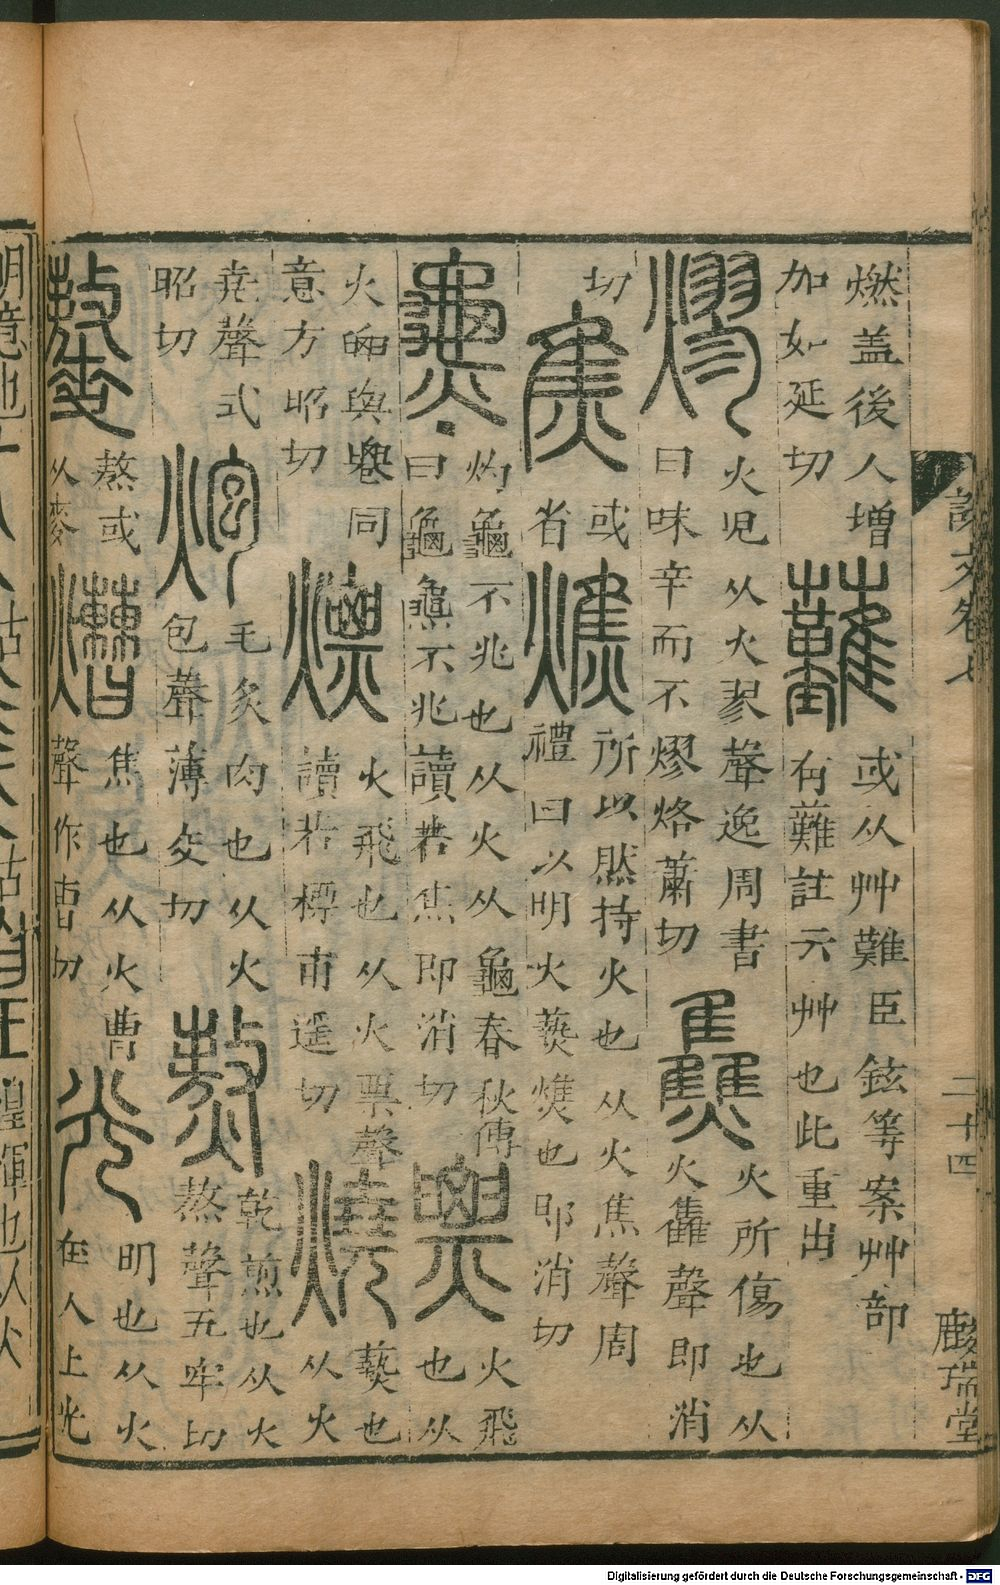 燃盖後人增
加如延切
䕼或从艸難臣鉉等案艸部
有䕼註云艸也此重出
熮火皃从火翏聲逸周書
曰味辛而不熮烙蕭切
𤓪火所傷也从
火雥聲即消
切
焦或
省
燋所以然持火也从火焦聲周
禮曰以明火爇燋也即消切
𤒅灼龜不兆也从火从龜春秋傳
曰龜𤒅不兆讀若焦即消切
㷼火飛也从
火𦥑與䙴同
意方昭切
熛火飛也从火㶾聲
讀若摽甫遥切
燒爇也
从火
堯聲式
昭切
炮毛炙肉也从火
包聲薄交切
熬乾煎也从火
敖聲五牢切
𪍷熬或
从麥
熷焦也从火曹
聲作曹切
光明也从火
在人上光
說文卷七
二十四
麟瑞堂
明意也
煌煇也从火
Digitalisierung gefördert durch die Deutsche Forschungsgemeinschaft - DFG